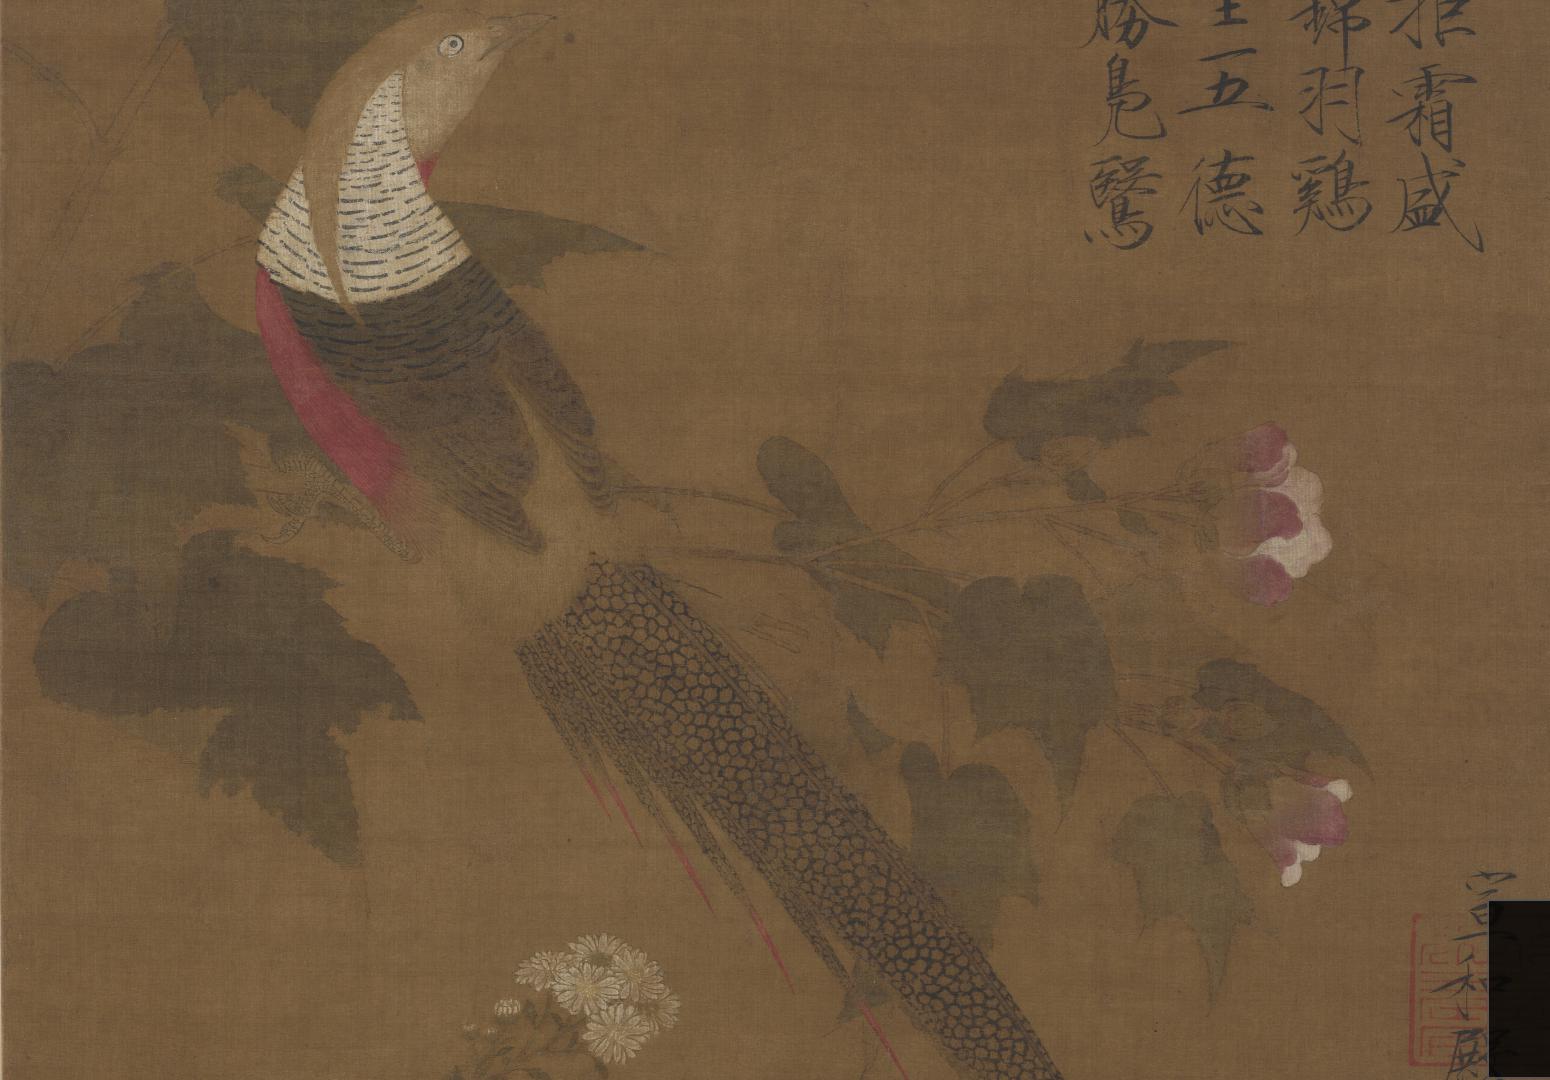 拒霜盛
錦羽鷄
全五德
勝鳧鷖
宣和殿